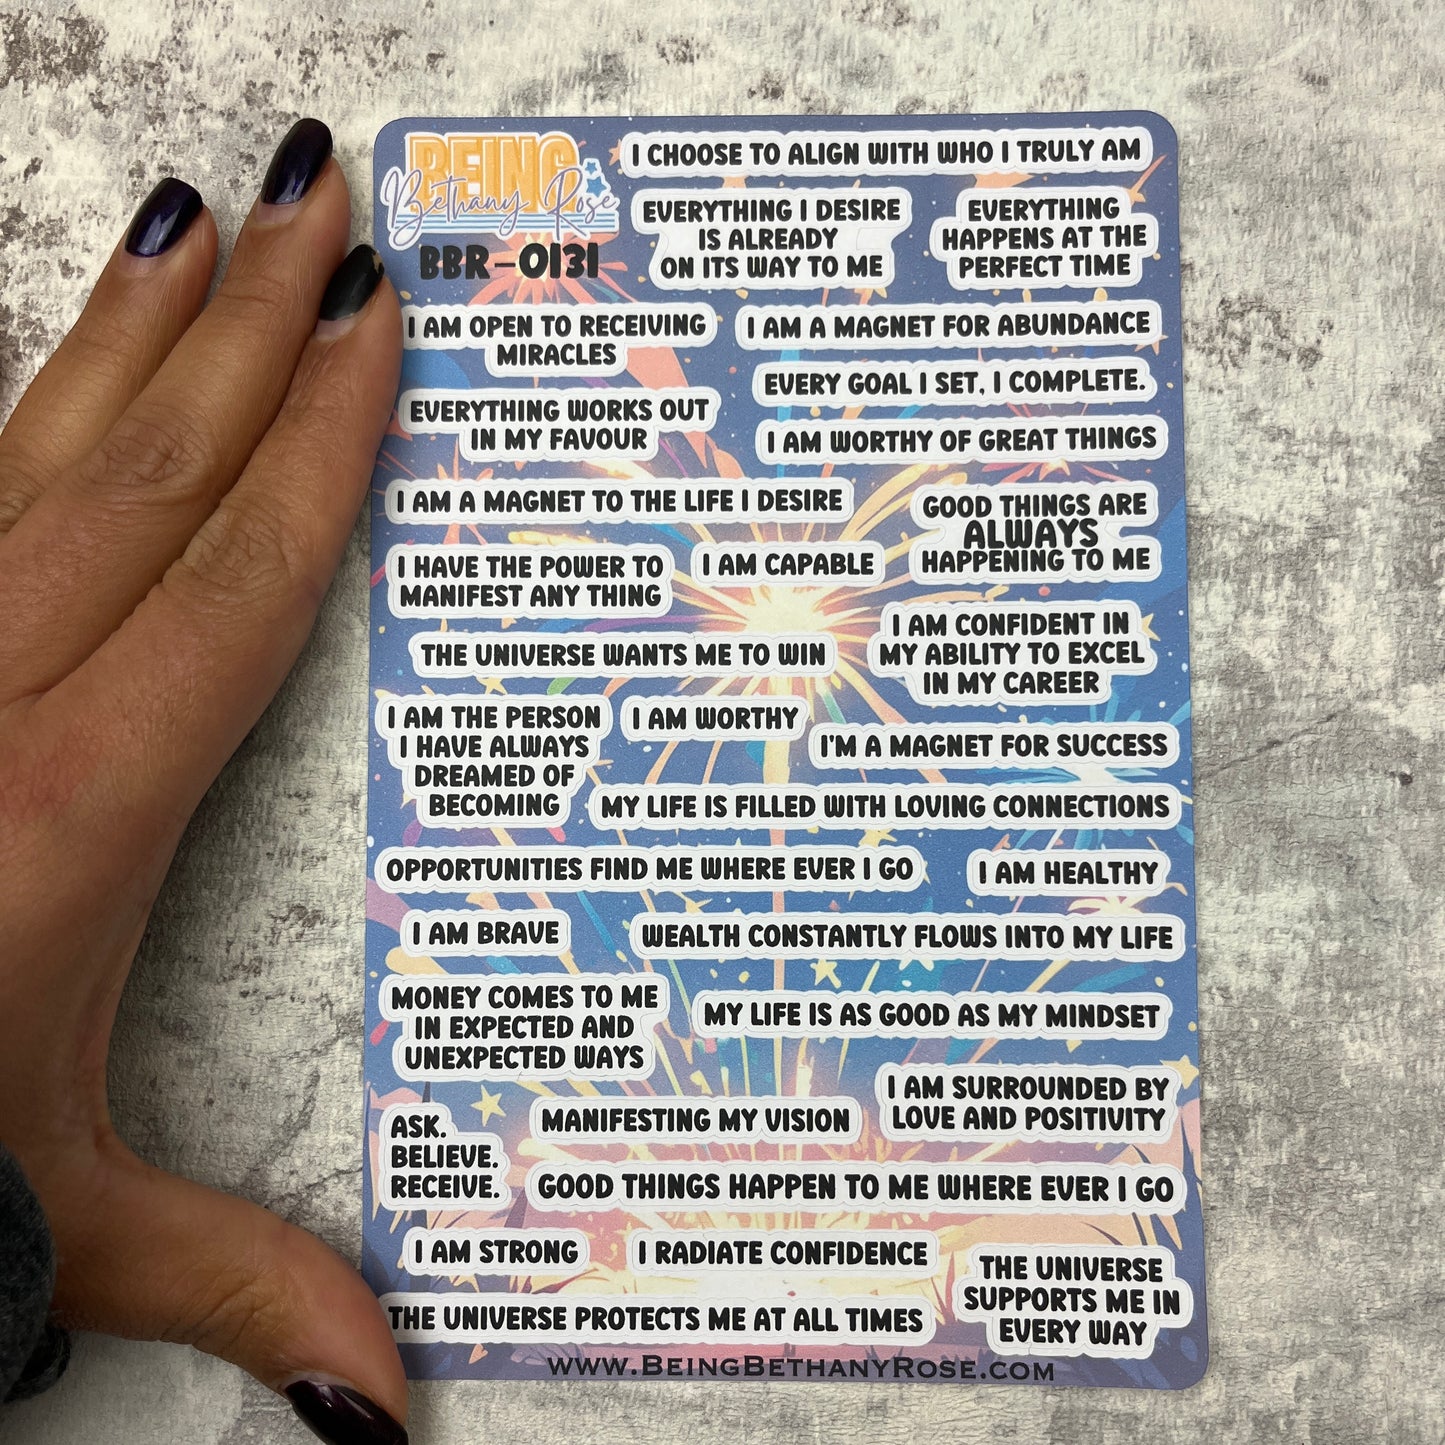 BEING
Bethany Rose
BBR-0131
I CHOOSE TO ALIGN WITH WHO I TRULY AM
EVERYTHING I DESIRE
IS ALREADY
ON ITS WAY TO ME
EVERYTHING
HAPPENS AT THE
PERFECT TIME
I AM OPEN TO RECEIVING
MIRACLES
I AM A MAGNET FOR ABUNDANCE
EVERY GOAL I SET, I COMPLETE.
EVERYTHING WORKS OUT
IN MY FAVOUR
I AM WORTHY OF GREAT THINGS
I AM A MAGNET TO THE LIFE I DESIRE
GOOD THINGS ARE
ALWAYS
HAPPENING TO ME
I HAVE THE POWER TO
MANIFEST ANY THING
I AM CAPABLE
THE UNIVERSE WANTS ME TO WIN
I AM CONFIDENT IN
MY ABILITY TO EXCEL
IN MY CAREER
I AM THE PERSON
I HAVE ALWAYS
DREAMED OF
BECOMING
I AM WORTHY
I'M A MAGNET FOR SUCCESS
MY LIFE IS FILLED WITH LOVING CONNECTIONS
OPPORTUNITIES FIND ME WHERE EVER I GO
I AM HEALTHY
I AM BRAVE
WEALTH CONSTANTLY FLOWS INTO MY LIFE
MONEY COMES TO ME
IN EXPECTED AND
UNEXPECTED WAYS
MY LIFE IS AS GOOD AS MY MINDSET
I AM SURROUNDED BY
LOVE AND POSITIVITY
ASK.
BELIEVE.
RECEIVE.
MANIFESTING MY VISION
GOOD THINGS HAPPEN TO ME WHERE EVER I GO
I AM STRONG
I RADIATE CONFIDENCE
THE UNIVERSE
SUPPORTS ME IN
EVERY WAY
THE UNIVERSE PROTECTS ME AT ALL TIMES
WWW.BEINGBETHANYROSE.COM